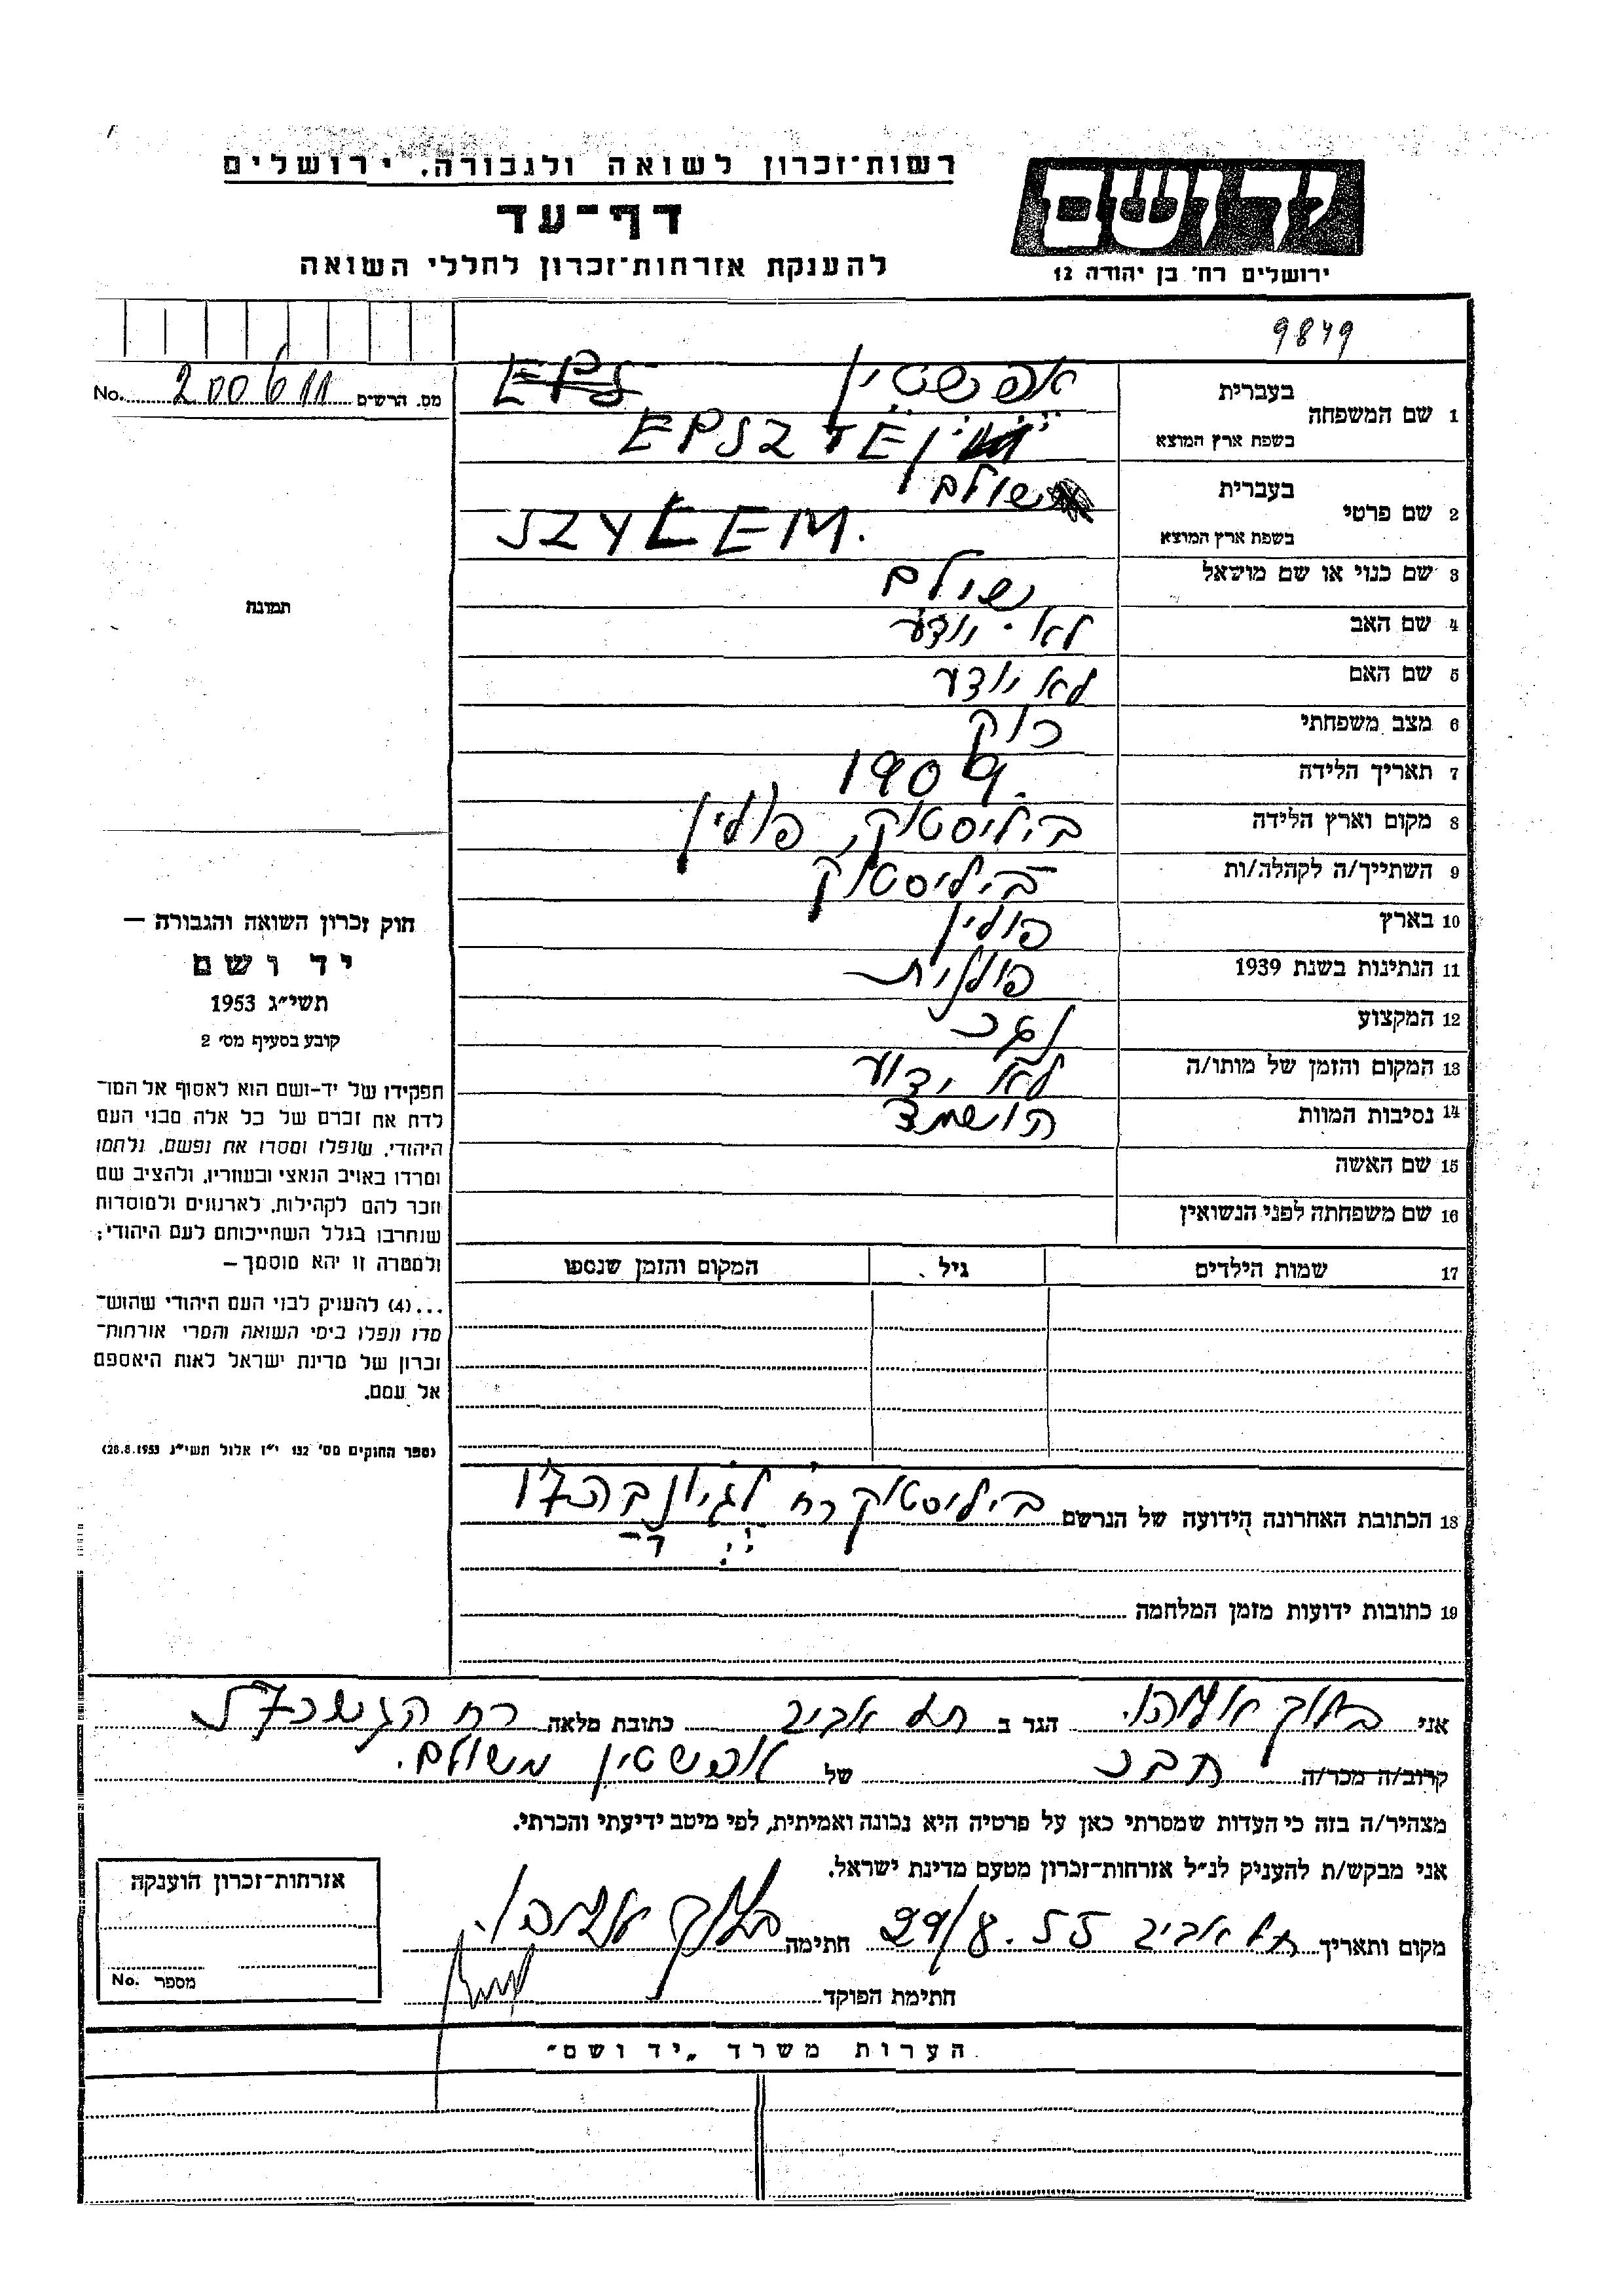 רשות־זכרון לשואה ולגבורה, ירושלים
דף־עד
להענקת אזרחות־זכרון לחללי השואה
יד ושם
ירושלים רח' בן יהודה 12
9849
No. 200611 מס. הרשים
1 שם המשפחה
בעברית אפשטיין EPS
בשפת ארץ המוצא EPSZTEIN
2 שם פרטי
בעברית שולם
בשפת ארץ המוצא SZYLEM.
3 שם כנוי או שם מושאל שולם
4 שם האב לא יודע
5 שם האם לא יודע
6 מצב משפחתי רוק
7 תאריך הלידה 1909
8 מקום וארץ הלידה ביליסטוק, פולין
9 השתייך/ה לקהלה/ות ביליסטוק
10 בארץ פולין
11 הנתינות בשנת 1939 פולנית
12 המקצוע נגר
13 המקום והזמן של מותו/ה לא ידוע
14 נסיבות המוות הושמד
15 שם האשה
16 שם משפחתה לפני הנשואין
17 שמות הילדים גיל המקום והזמן שנספו
תמונה
חוק זכרון השואה והגבורה —
יד ושם
תשי״ג 1953
קובע בסעיף מס׳ 2
תפקידו של יד-ושם הוא לאסוף אל המו־
לדת את זכרם של כל אלה מבני העם
היהודי, שנפלו ומסרו את נפשם, נלחמו
ומרדו באויב הנאצי ובעוזריו, ולהציב שם
וזכר להם לקהילות, לארגונים ולמוסדות
שנחרבו בגלל השתייכותם לעם היהודי;
ולמטרה זו יהא מוסמך —
...(4) להעניק לבני העם היהודי שהוש־
מדו ונפלו בימי השואה והמרי אזרחות־
זכרון של מדינת ישראל לאות היאספם
אל עמם.
(ספר החוקים מס׳ 132 י״ז אלול תשי״ג 28.8.1953)
18 הכתובת האחרונה הידועה של הנרשם ביליסטוק רח
19 כתובות ידועות מזמן המלחמה
אני ברוך אליהו. הגר ב תל אביב כתובת מלאה רח
קרוב/ה מכר/ה חבר של אפשטיין משולם.
מצהיר/ה בזה כי העדות שמסרתי כאן על פרטיה היא נכונה ואמיתית, לפי מיטב ידיעתי והכרתי.
אני מבקש/ת להעניק לנ״ל אזרחות־זכרון מטעם מדינת ישראל.
מקום ותאריך תל אביב 29/8.55 חתימה ברוך אליהו.
חתימת הפוקד
אזרחות־זכרון הוענקה
No. מספר
הערות משרד „יד ושם״